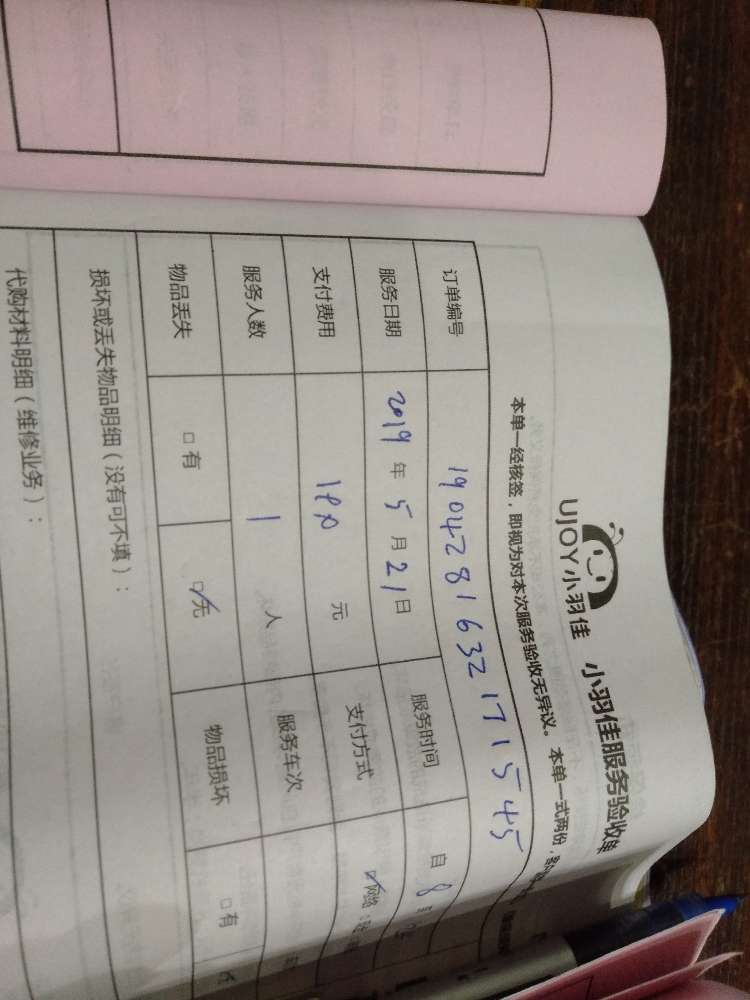 UJOY小羽佳 小羽佳服务验收单
本单一经核签，即视为对本次服务验收无异议。本单一式两份，
订单编号 1904281632171545
服务日期 2019年5月21日 服务时间 自8
支付费用 元 支付方式 ☑网络
服务人数 1人 服务车次
物品丢失 □有 ☑无 物品损坏 □有
损坏或丢失物品明细（没有可不填）：
代购材料明细（维修业务）：